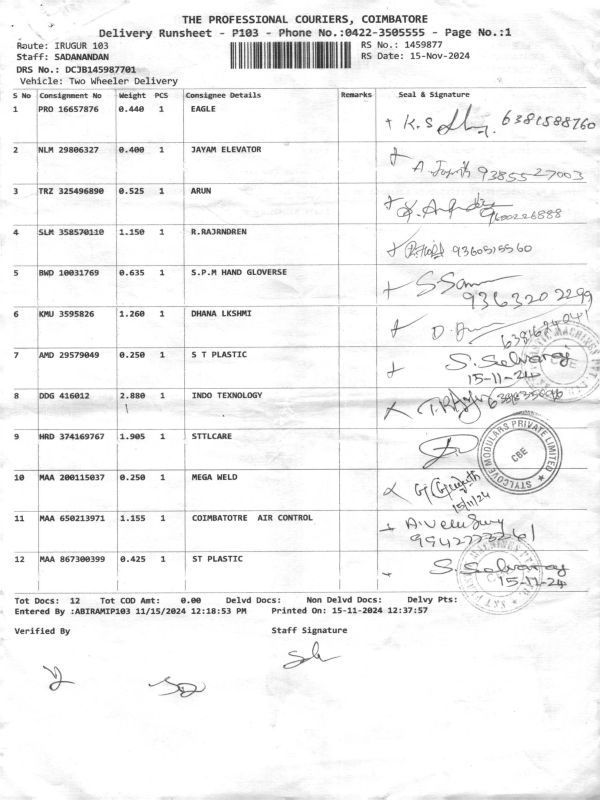 THE PROFESSIONAL COURIERS, COIMBATORE
Delivery Runsheet - P103 - Phone No.:0422-3505555 - Page No.:1
Route: IRUGUR 103 RS No.: 1459877
Staff: SADANANDAN RS Date: 15-Nov-2024
DRS No.: DCJB145987701
Vehicle: Two Wheeler Delivery
S No Consignment No Weight PCS Consignee Details Remarks Seal & Signature
1 PRO 16657876 0.440 1 EAGLE K.S 6381588760
2 NLM 29806327 0.400 1 JAYAM ELEVATOR 9385527003
3 TRZ 325496890 0.525 1 ARUN 9600226888
4 SLM 358570110 1.150 1 R.RAJRNDREN 9360515560
5 BWD 10031769 0.635 1 S.P.M HAND GLOVERSE 9363202299
6 KMU 3595826 1.260 1 DHANA LKSHMI
7 AMD 29579049 0.250 1 S T PLASTIC S. Selvaraj
15-11-24
8 DDG 416012 2.880 1 INDO TEXNOLOGY
9 HRD 374169767 1.905 1 STTLCARE
STYLCOVE MODULARS PRIVATE LIMITED
CBE
10 MAA 200115037 0.250 1 MEGA WELD
15/11/24
11 MAA 650213971 1.155 1 COIMBATOTRE AIR CONTROL
9942223261
12 MAA 867300399 0.425 1 ST PLASTIC S. Selvaraj
15-11-24
Tot Docs: 12 Tot COD Amt: 0.00 Delvd Docs: Non Delvd Docs: Delvy Pts:
Entered By :ABIRAMIP103 11/15/2024 12:18:53 PM Printed On: 15-11-2024 12:37:57
Verified By Staff Signature